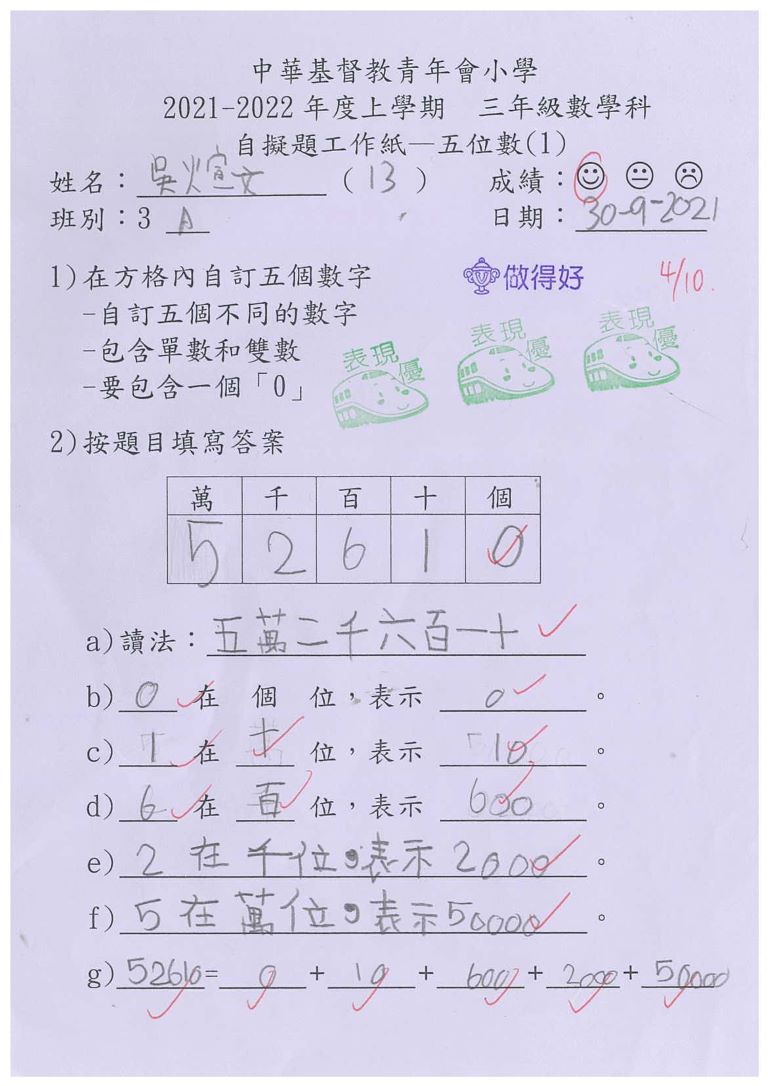 中華基督教青年會小學
2021-2022 年度上學期 三年級數學科
自擬題工作紙—五位數(1)
姓名：吳 宣文 (13) 成績：
班別：3 A 日期：30-9-2021
1)在方格內自訂五個數字 做得好 4/10.
-自訂五個不同的數字 表現優 表現優
-包含單數和雙數 表現優
-要包含一個「0」
2)按題目填寫答案
萬 千 百 十 個
5 2 6 1 0
a)讀法：五萬二千六百一十
b) 0 在 個 位，表示 0 。
c) 1 在 十 位，表示 10 。
d) 6 在 百 位，表示 600 。
e) 2 在 千位，表示 2000 。
f) 5 在 萬位，表示50000 。
g) 52610= 0 + 10 + 600 + 2000 + 50000